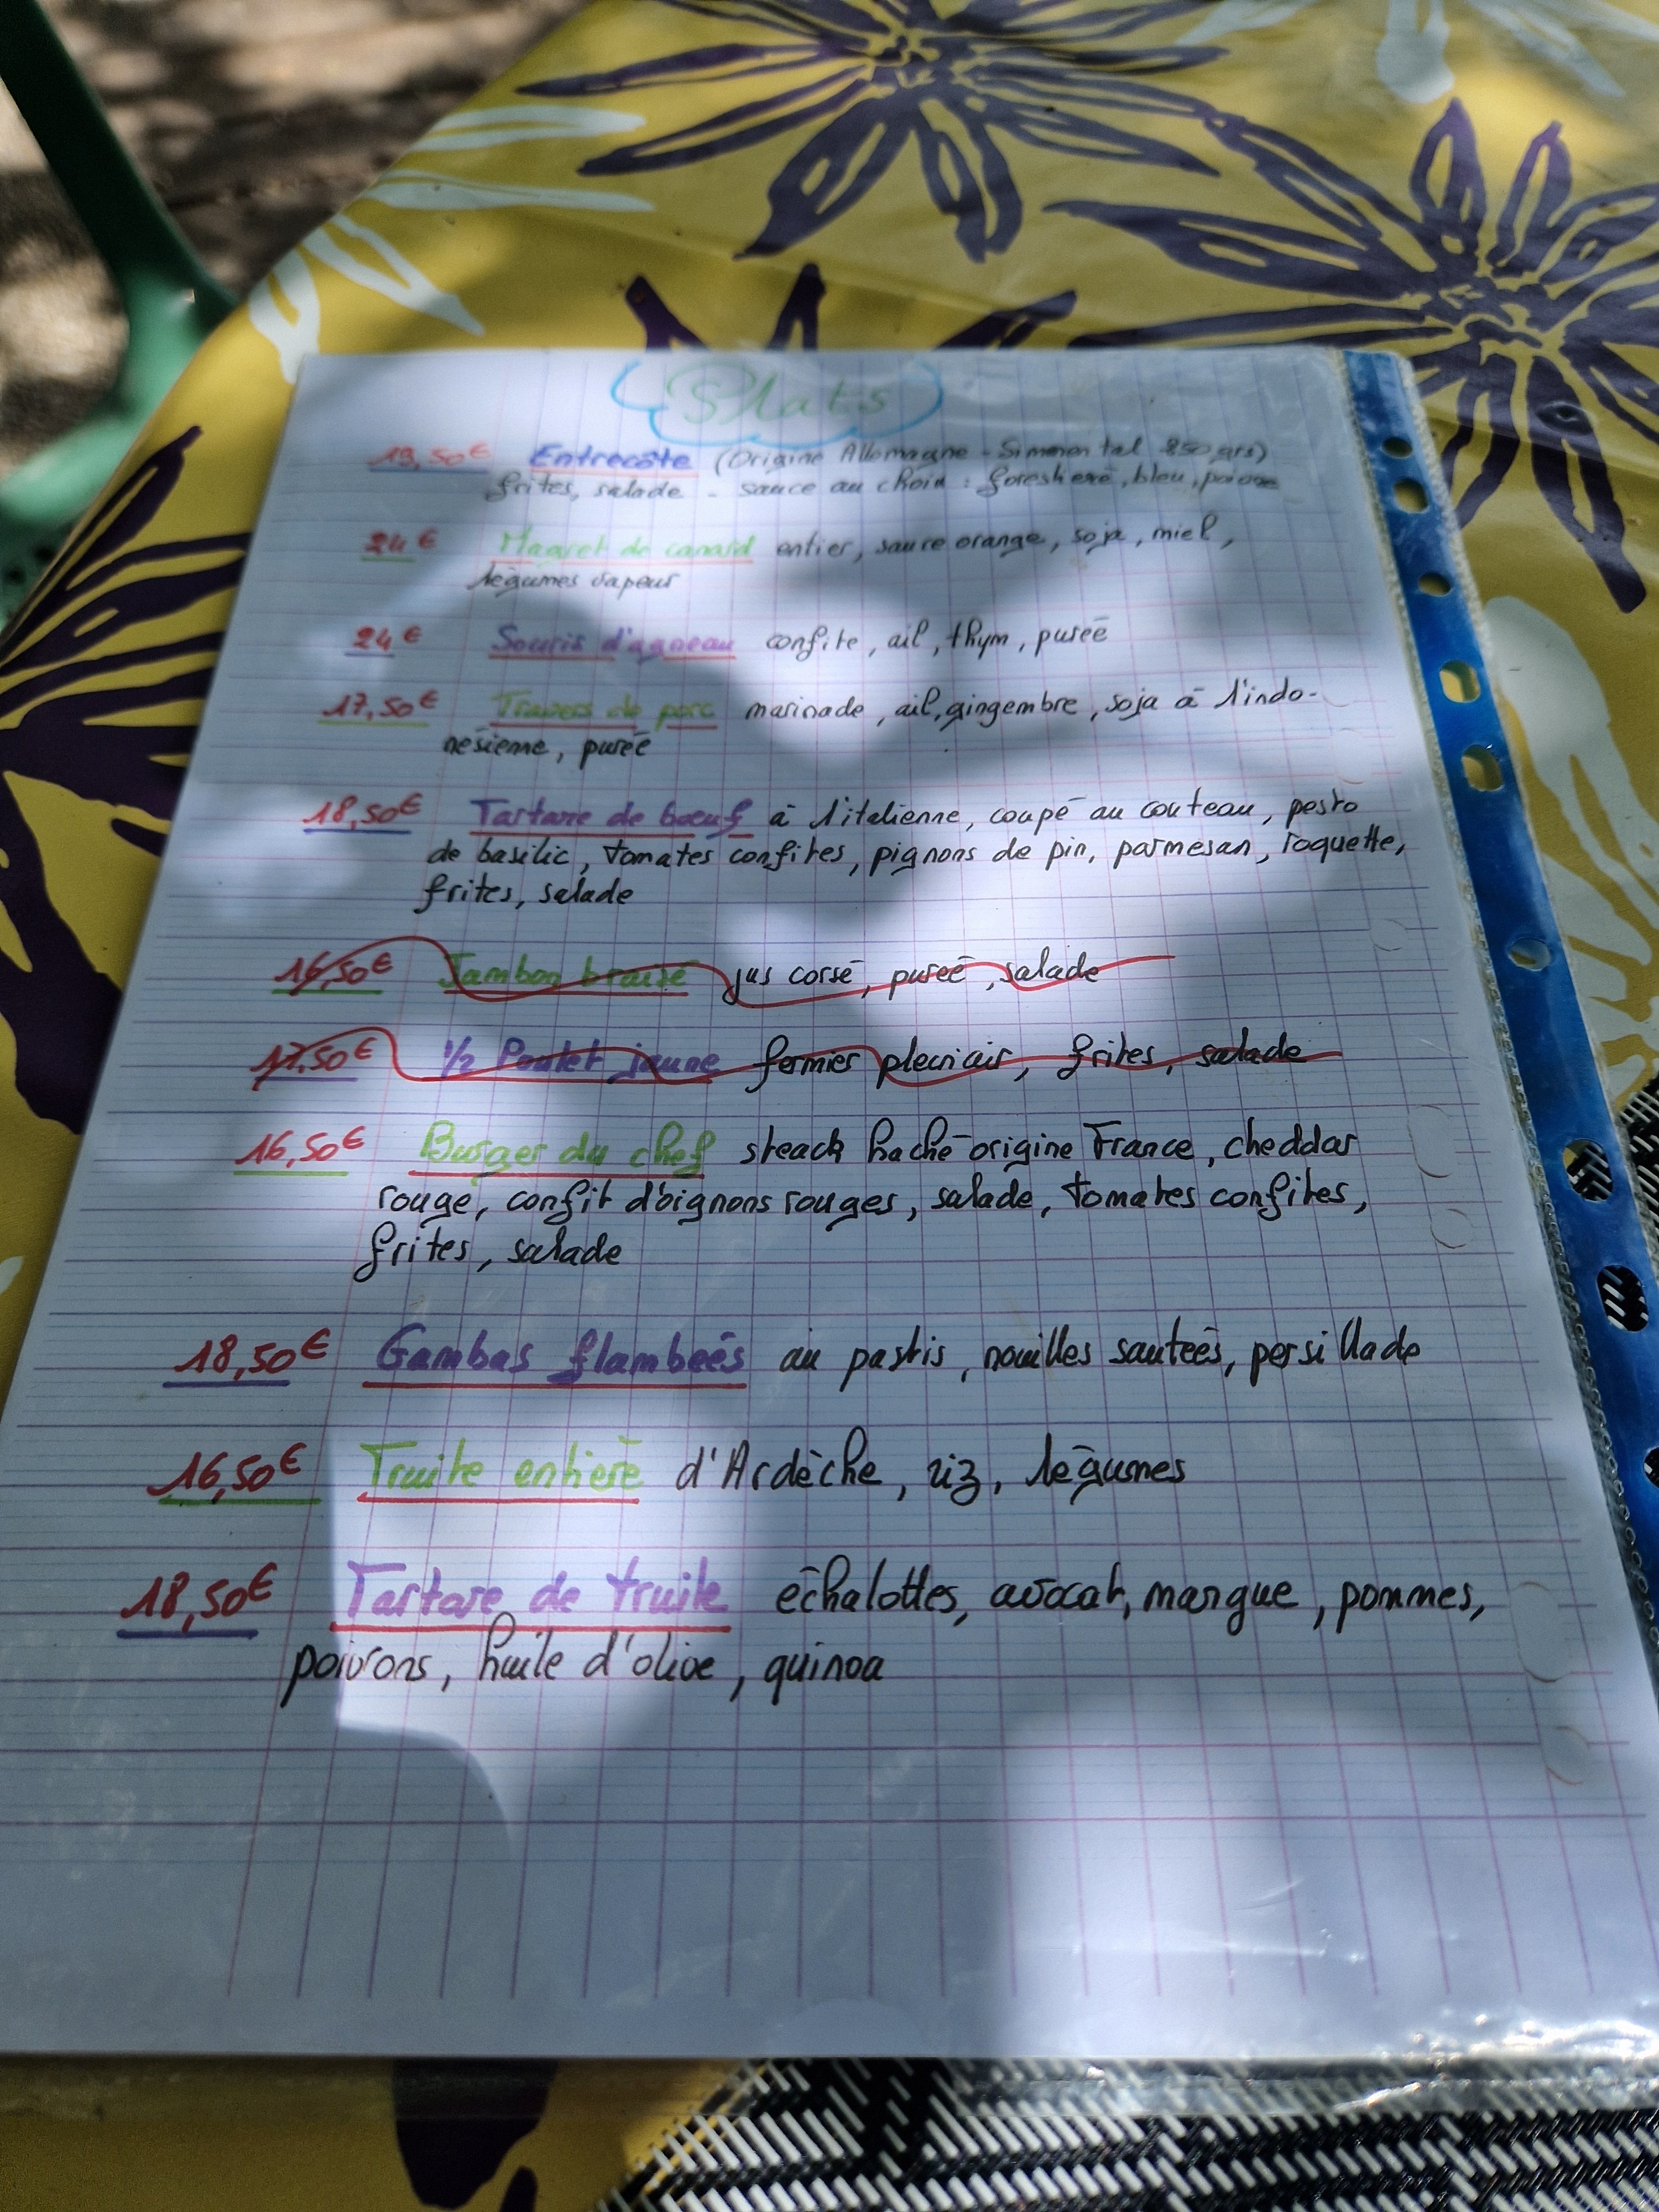 Plats
19,50€ Entrecôte (Origine Allemagne - Simmental 250 grs)
frites, salade - sauce au choix : forestière, bleu, poivre
24€ Magret de canard entier, sauce orange, soja, miel,
légumes vapeur
24€ Souris d'agneau confite, ail, thym, purée
17,50€ Travers de porc marinade, ail, gingembre, soja à l'indo-
nésienne, purée
18,50€ Tartare de bœuf à l'italienne, coupé au couteau, pesto
de basilic, tomates confites, pignons de pin, parmesan, roquette,
frites, salade
16,50€ Jambon braisé jus corsé, pureé, salade
17,50€ 1/2 Poulet jaune fermier plein air, frites, salade
16,50€ Burger du chef steack haché origine France, cheddar
rouge, confit d'oignons rouges, salade, tomates confites,
frites, salade
18,50€ Gambas flambeés au pastis, nouilles sauteés, persillade
16,50€ Truite entière d'Ardèche, riz, légumes
18,50€ Tartare de truite échalottes, avocat, mangue, pommes,
poivrons, huile d'olive, quinoa